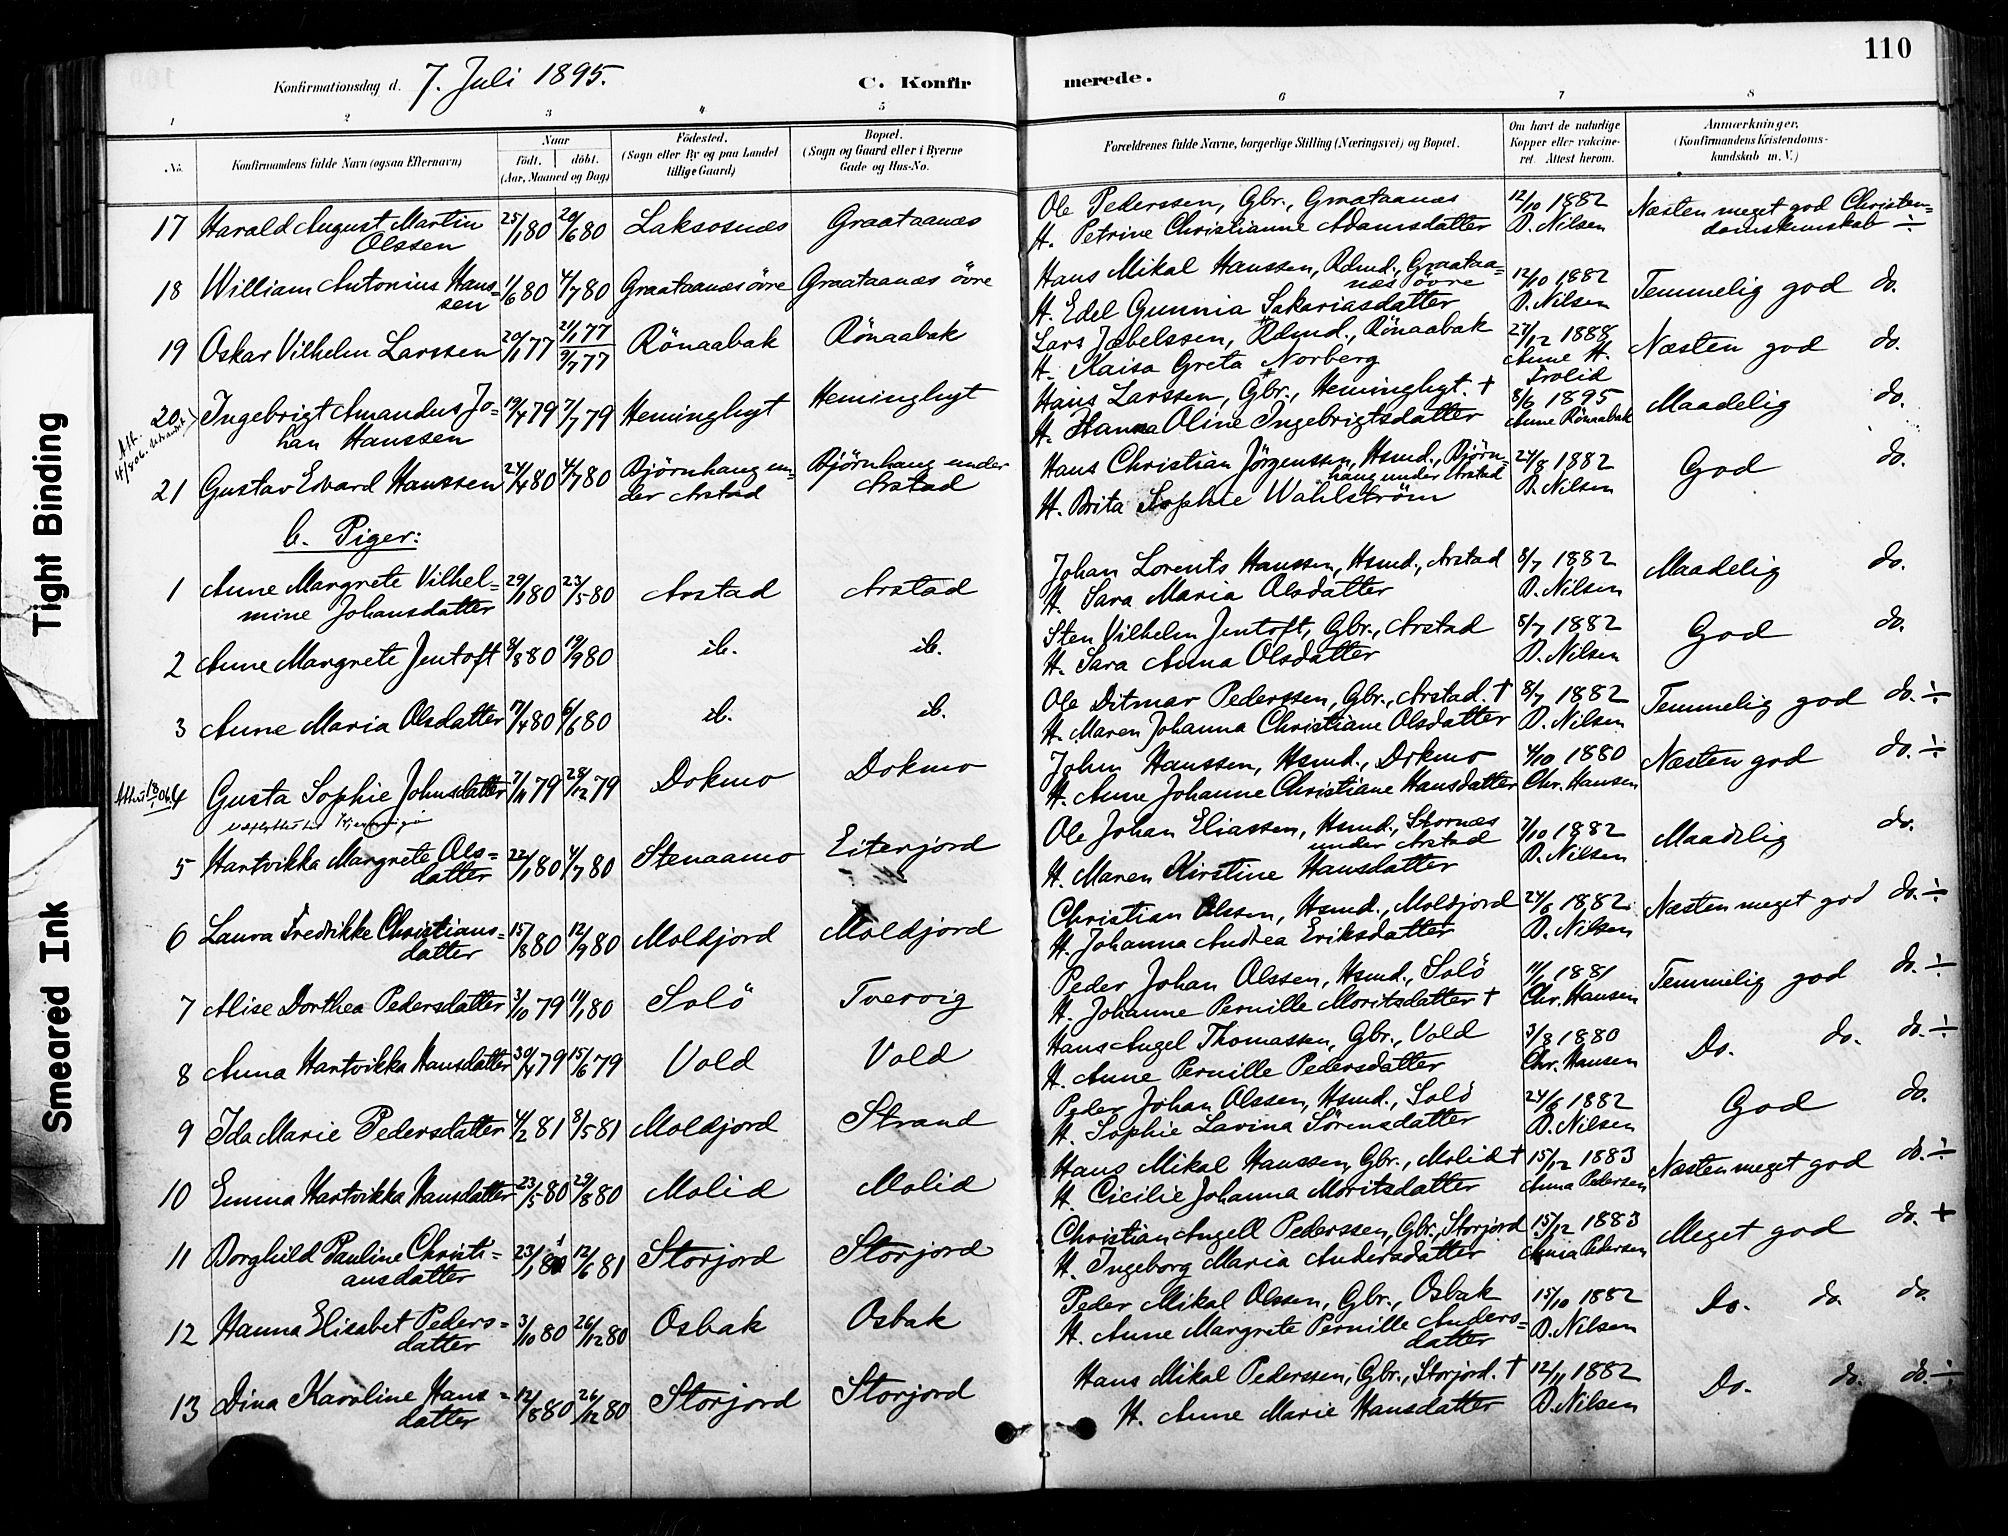 110
Konfirmationsdag d. 7. Juli 1895. C. Konfirmerede.
1 2 3 4 5 6 7 8
No. Konfirmandens fulde Navn (ogsaa Efternavn)
Naar
født. døbt.
(Aar, Maaned og Dag)
Födested.
(Sogn eller By og paa Landet
tillige Gaard)
Bopæl.
(Sogn og Gaard eller i Byerne
Gade og Hus-No.
Forældrenes fulde Navne, borgerlige Stilling (Næringsvei) og Bopæl.
Om havt de naturlige
Kopper eller vakcine-
ret. Attest herom.
Anmærkninger.
(Konfirmandens Kristendoms-
kundskab m. V.)
17 Harald August Martin Olssen 25/1 80 20/6 80 Laksosnæs Graataanæs
Ole Pederssen, Gbr., Graataanæs 12/10 1882 Næsten meget god Christen-
H. Petrine Christianne Adamsdatter D. Nilsen domskunskab ÷
18 William Antonius Hans-
sen 1/6 80 4/7 80 Graataanæs övre Graataanæs övre
Hans Mikal Hanssen, Rdmd., Graataa-
næs övre 12/10 1882 Temmelig god do.
H. Edel Gunnia Sakariasdatter D. Nilsen
19 Oskar Vilhelm Larssen 20/1 77 21/1 77
9/7 77 Rönaabak Rönaabak
Lars Jæbelssen, Rdmd., Rönaabak 27/12 1888 Næsten god do.
H. Kaisa Greta Norberg Anne H.
Trolid
20 Ingebrigt Amandus Jo-
han Hanssen 19/4 79 7/7 79 Heminghyt Heminghyt
Hans Larssen, Gbr., Heminghyt. † 8/3 1895 Maadelig do.
H. Hanna Oline Ingebrigtsdatter Anne Rönaabak
21 Gustav Edvard Hanssen 24/4 80 4/7 80 Bjørnhaug un-
der Arstad Bjørnhaug under
Arstad
Hans Christian Jörgenssen, Hsmd., Björn-
haug under Arstad 24/8 1882 God do.
H. Brita Sophie Wahlström D. Nilsen
b. Piger:
1 Anne Margrete Vilhel-
mine Johansdatter 29/1 80 23/5 80 Arstad Arstad
Johan Lorents Hanssen, Hsmd., Arstad 8/7 1882 Maadelig do.
H. Sara Maria Olsdatter D. Nilsen
2 Anne Margrete Jentoft 8/8 80 19/9 80 ib. ib.
Sten Vilhelm Jentoft, Gbr., Arstad 8/7 1882 God do.
H. Sara Anna Olsdatter D. Nilsen
3 Anne Maria Olsdatter 17/4 80 6/6 80 ib. ib.
Ole Ditmar Pederssen, Gbr., Arstad. † 8/7 1882 Temmelig god do. ÷
H. Maren Johanna Christiane Olsdatter D. Nilsen
4 Gusta Sophie Johnsdatter 7/11 79 28/12 79 Dokmo Dokmo
John Hanssen, Hsmd., Dokmo 4/10 1880 Næsten god do. ÷
H. Anne Johanne Christiane Hansdatter Chr. Hansen
5 Hartvikka Margrete Ols-
datter 22/1 80 4/7 80 Stenaamo Eiterjord
Ole Johan Eliassen, Hsmd., Stornæs
under Arstad 7/10 1882 Maadelig do.
H. Maren Kirstine Hansdatter D. Nilsen
6 Laura Fredrikke Christians-
datter 15/8 80 12/9 80 Moldjord Moldjord
Christian Olssen, Hsmd., Moldjord 24/6 1882 Næsten meget god do. ÷
H. Johanna Andrea Eriksdatter D. Nilsen
7 Alise Dorthea Pedersdatter 3/10 79 11/1 80 Solö Tvervig
Peder Johan Olssen, Hsmd., Solö 1881 Temmelig god do. ÷
H. Johanne Pernille Moritsdatter † Chr. Hansen
8 Anna Hartvikka Hansdatter 30/4 79 15/6 79 Vold Vold
Hans Angel Thomassen, Gbr., Vold 3/8 1880 Do. do. do. ÷
H. Anne Pernille Pedersdatter Chr. Hansen
9 Ida Marie Pedersdatter 4/2 81 8/5 81 Moldjord Strand
Peder Johan Olssen, Hsmd., Solö 24/6 1882 God do.
H. Sophie Lavina Sörensdatter D. Nilsen
10 Emma Hartvikka Hansdatter 23/5 80 29/8 80 Molid Molid
Hans Mikal Hanssen, Gbr., Molid † 15/12 1883 Næsten meget god do. ÷
H. Cicilie Johanna Moritsdatter Anna Pedersen
11 Borghild Pauline Christi-
ansdatter 23/1 81 12/6 81 Storjord Storjord
Christian Angell Pederssen, Gbr., Storjord 15/12 1883 Meget god do. +
H. Ingeborg Maria Andersdatter Anna Pedersen
12 Hanna Elisabet Peders-
datter 3/10 80 26/12 80 Osbak Osbak
Peder Mikal Olssen, Gbr., Osbak 15/10 1882 Do. do. do.
H. Anne Margrete Pernille Anders-
datter D. Nilsen
13 Dina Karoline Hans-
datter 12/8 80 26/12 80 Storjord Storjord
Hans Mikal Pederssen, Gbr., Storjord. † 12/11 1882 Do. do. do. ÷
H. Anne Marie Hansdatter D. Nilsen
Tight Binding
Smeared Ink